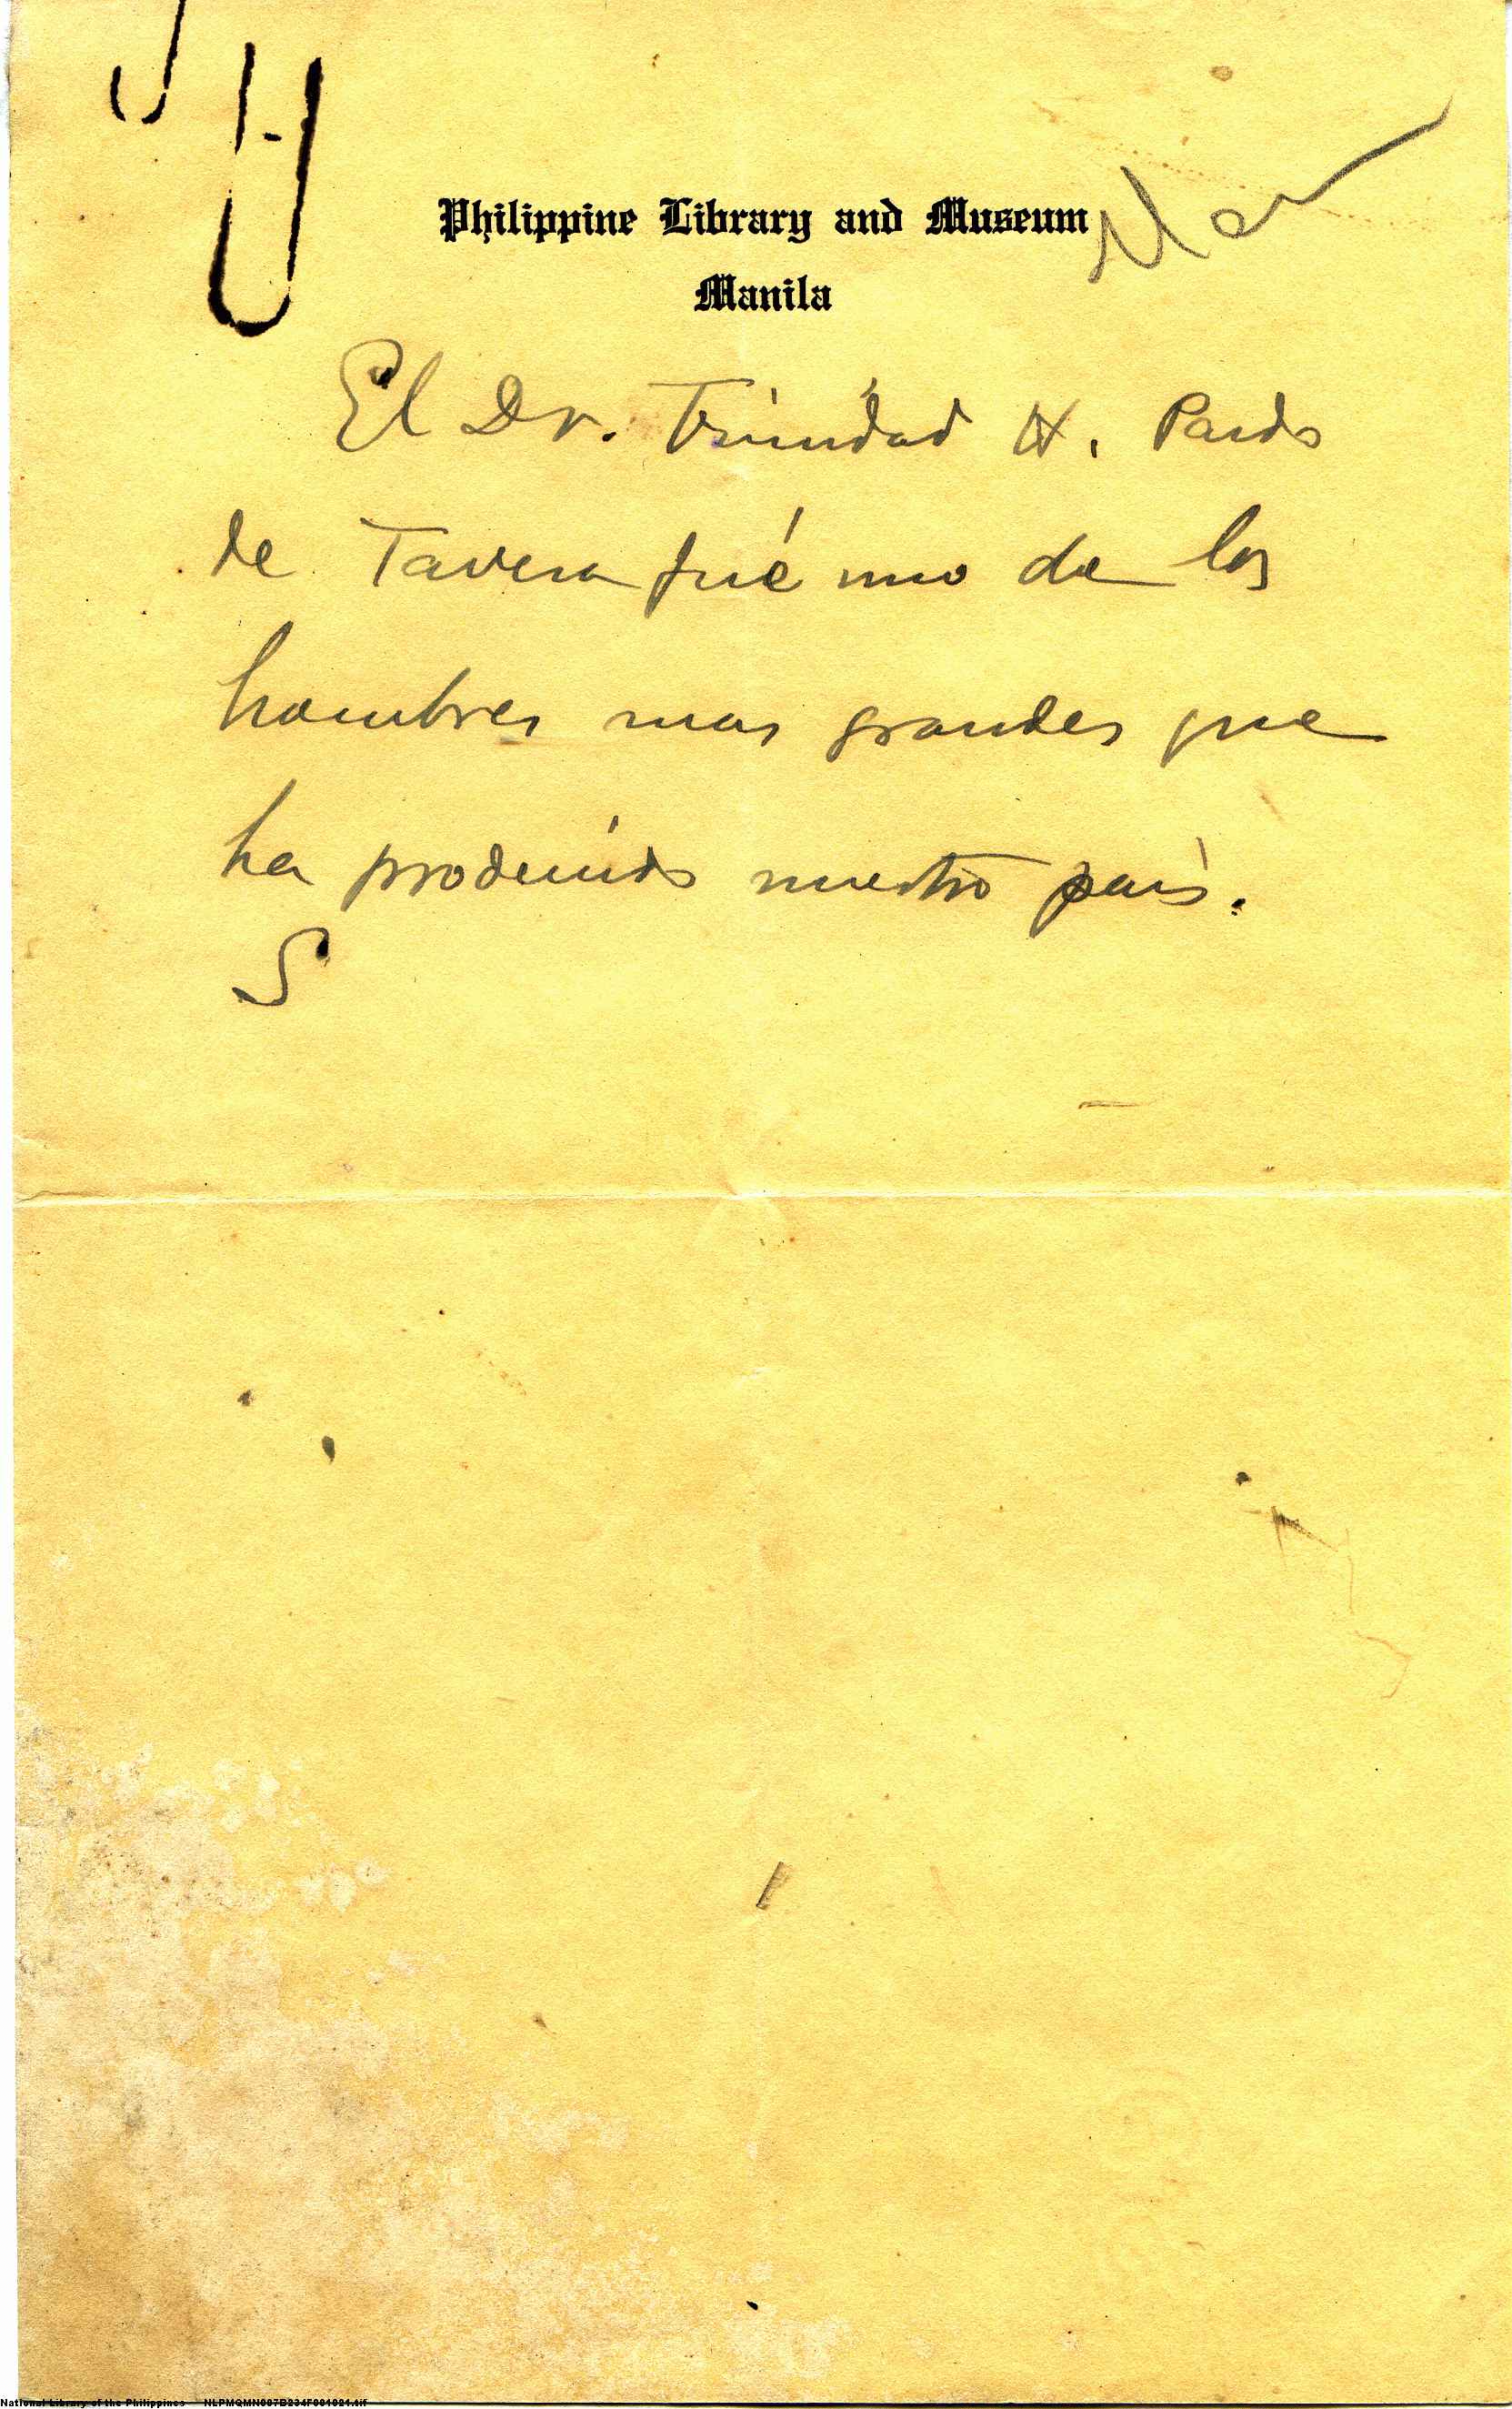 Philippine Library and Museum
Manila
El Dr. Trinidad H. Pardo
de Tavera fué uno de los
hombres mas grandes que
ha producido nuestro país.
S
National Library of the Philippines